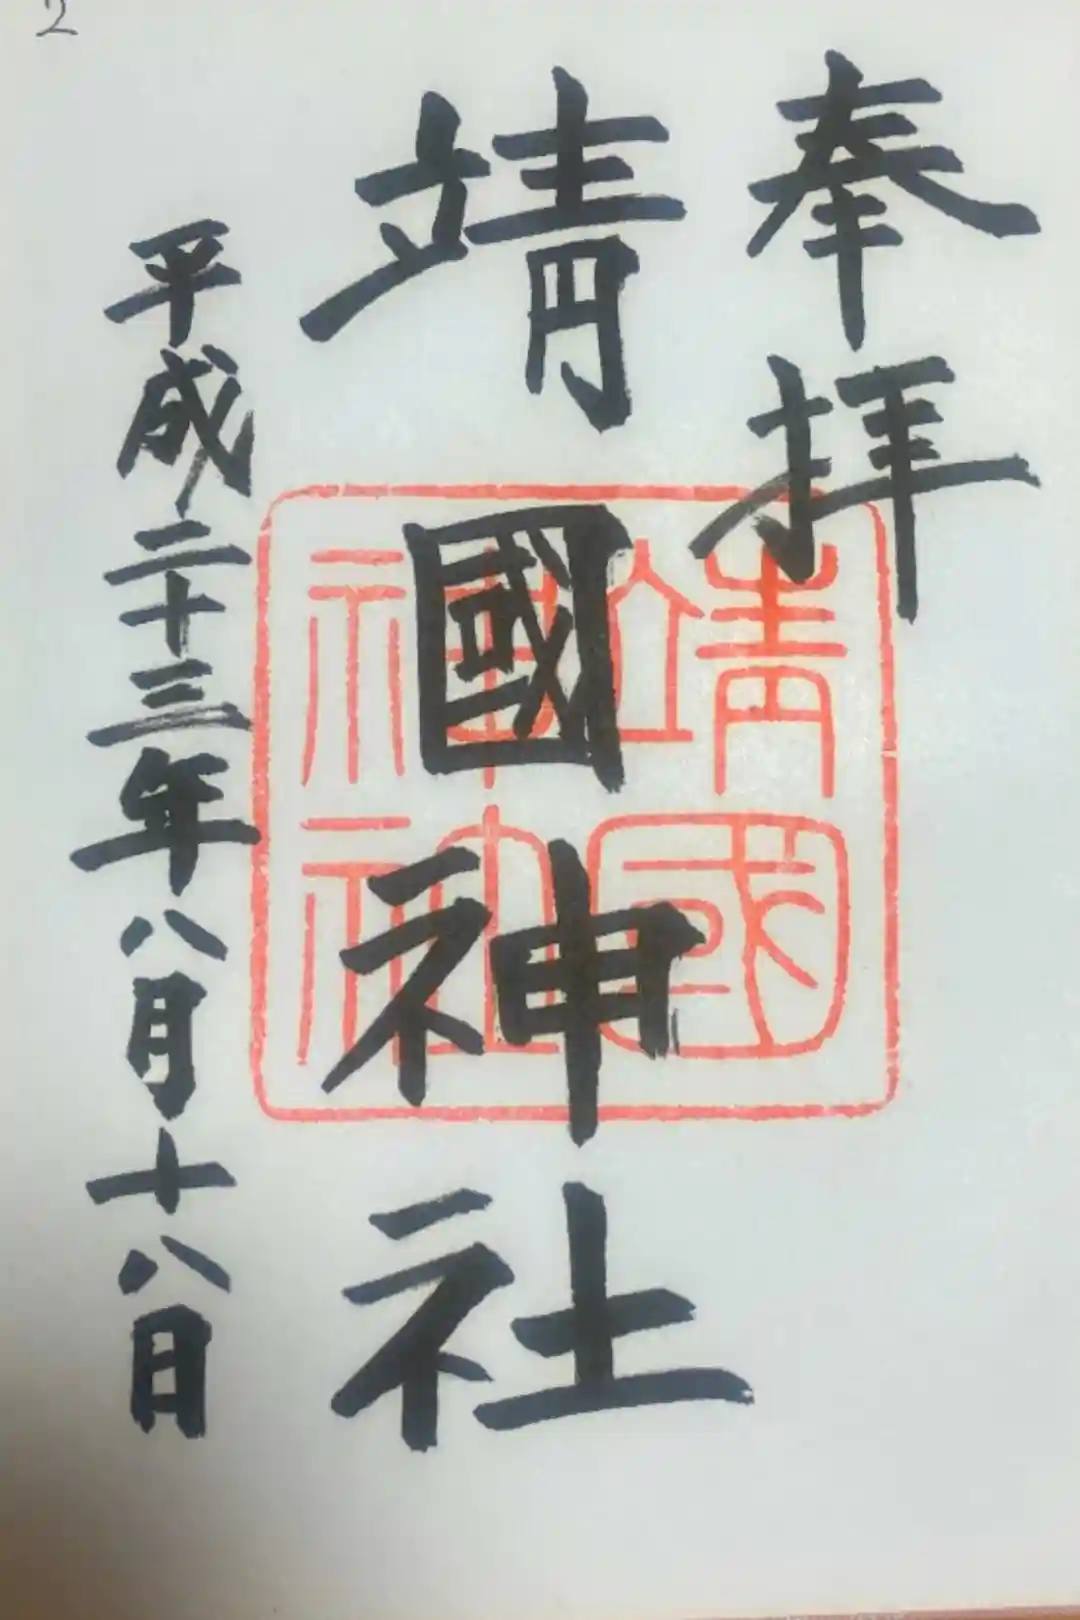 2
奉拝
靖國神社
平成二十三年八月十八日
靖國
神社